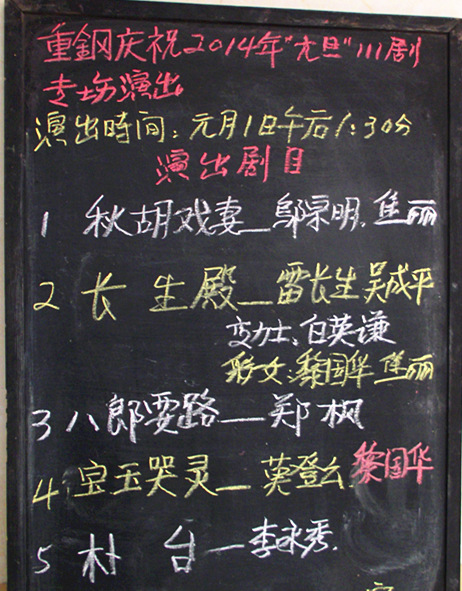 重鋼庆祝2014年"元旦"川剧
专场演出
演出時间:元月1日午后1:30分
演出剧目
1 秋胡戏妻—鄔宗明.焦丽
2 长生殿—雷长生吴成平
力士:白英谦
彩女:黎国华 焦丽
3 八郎耍路—郑枫
4 宝玉哭灵—莫登么.黎国华
5 朴台—李永秀.